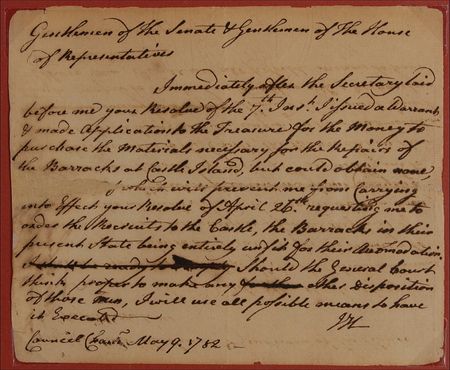 Gentlemen of the Senate & Gentlemen of The House
of Representatives
Immediately after the Secretary laid
before me your Resolve of the 7th Inst. I issued a Warrant
& made Application to the Treasure for the Money to
purchase the Materials necessary for the Repairs of
the Barracks at Castle Island, but could obtain none,
which will prevent me from Carrying
into Effect your Resolve of April 26th requesting me to
order the Recruits to the Castle, the Barracks in their
present State being entirely unfit for their Accomodation,
Should the General Court
think proper to make any other disposition
of those men, I will use all possible means to have
it Executed
JH
Council Chamr. May 9. 1782